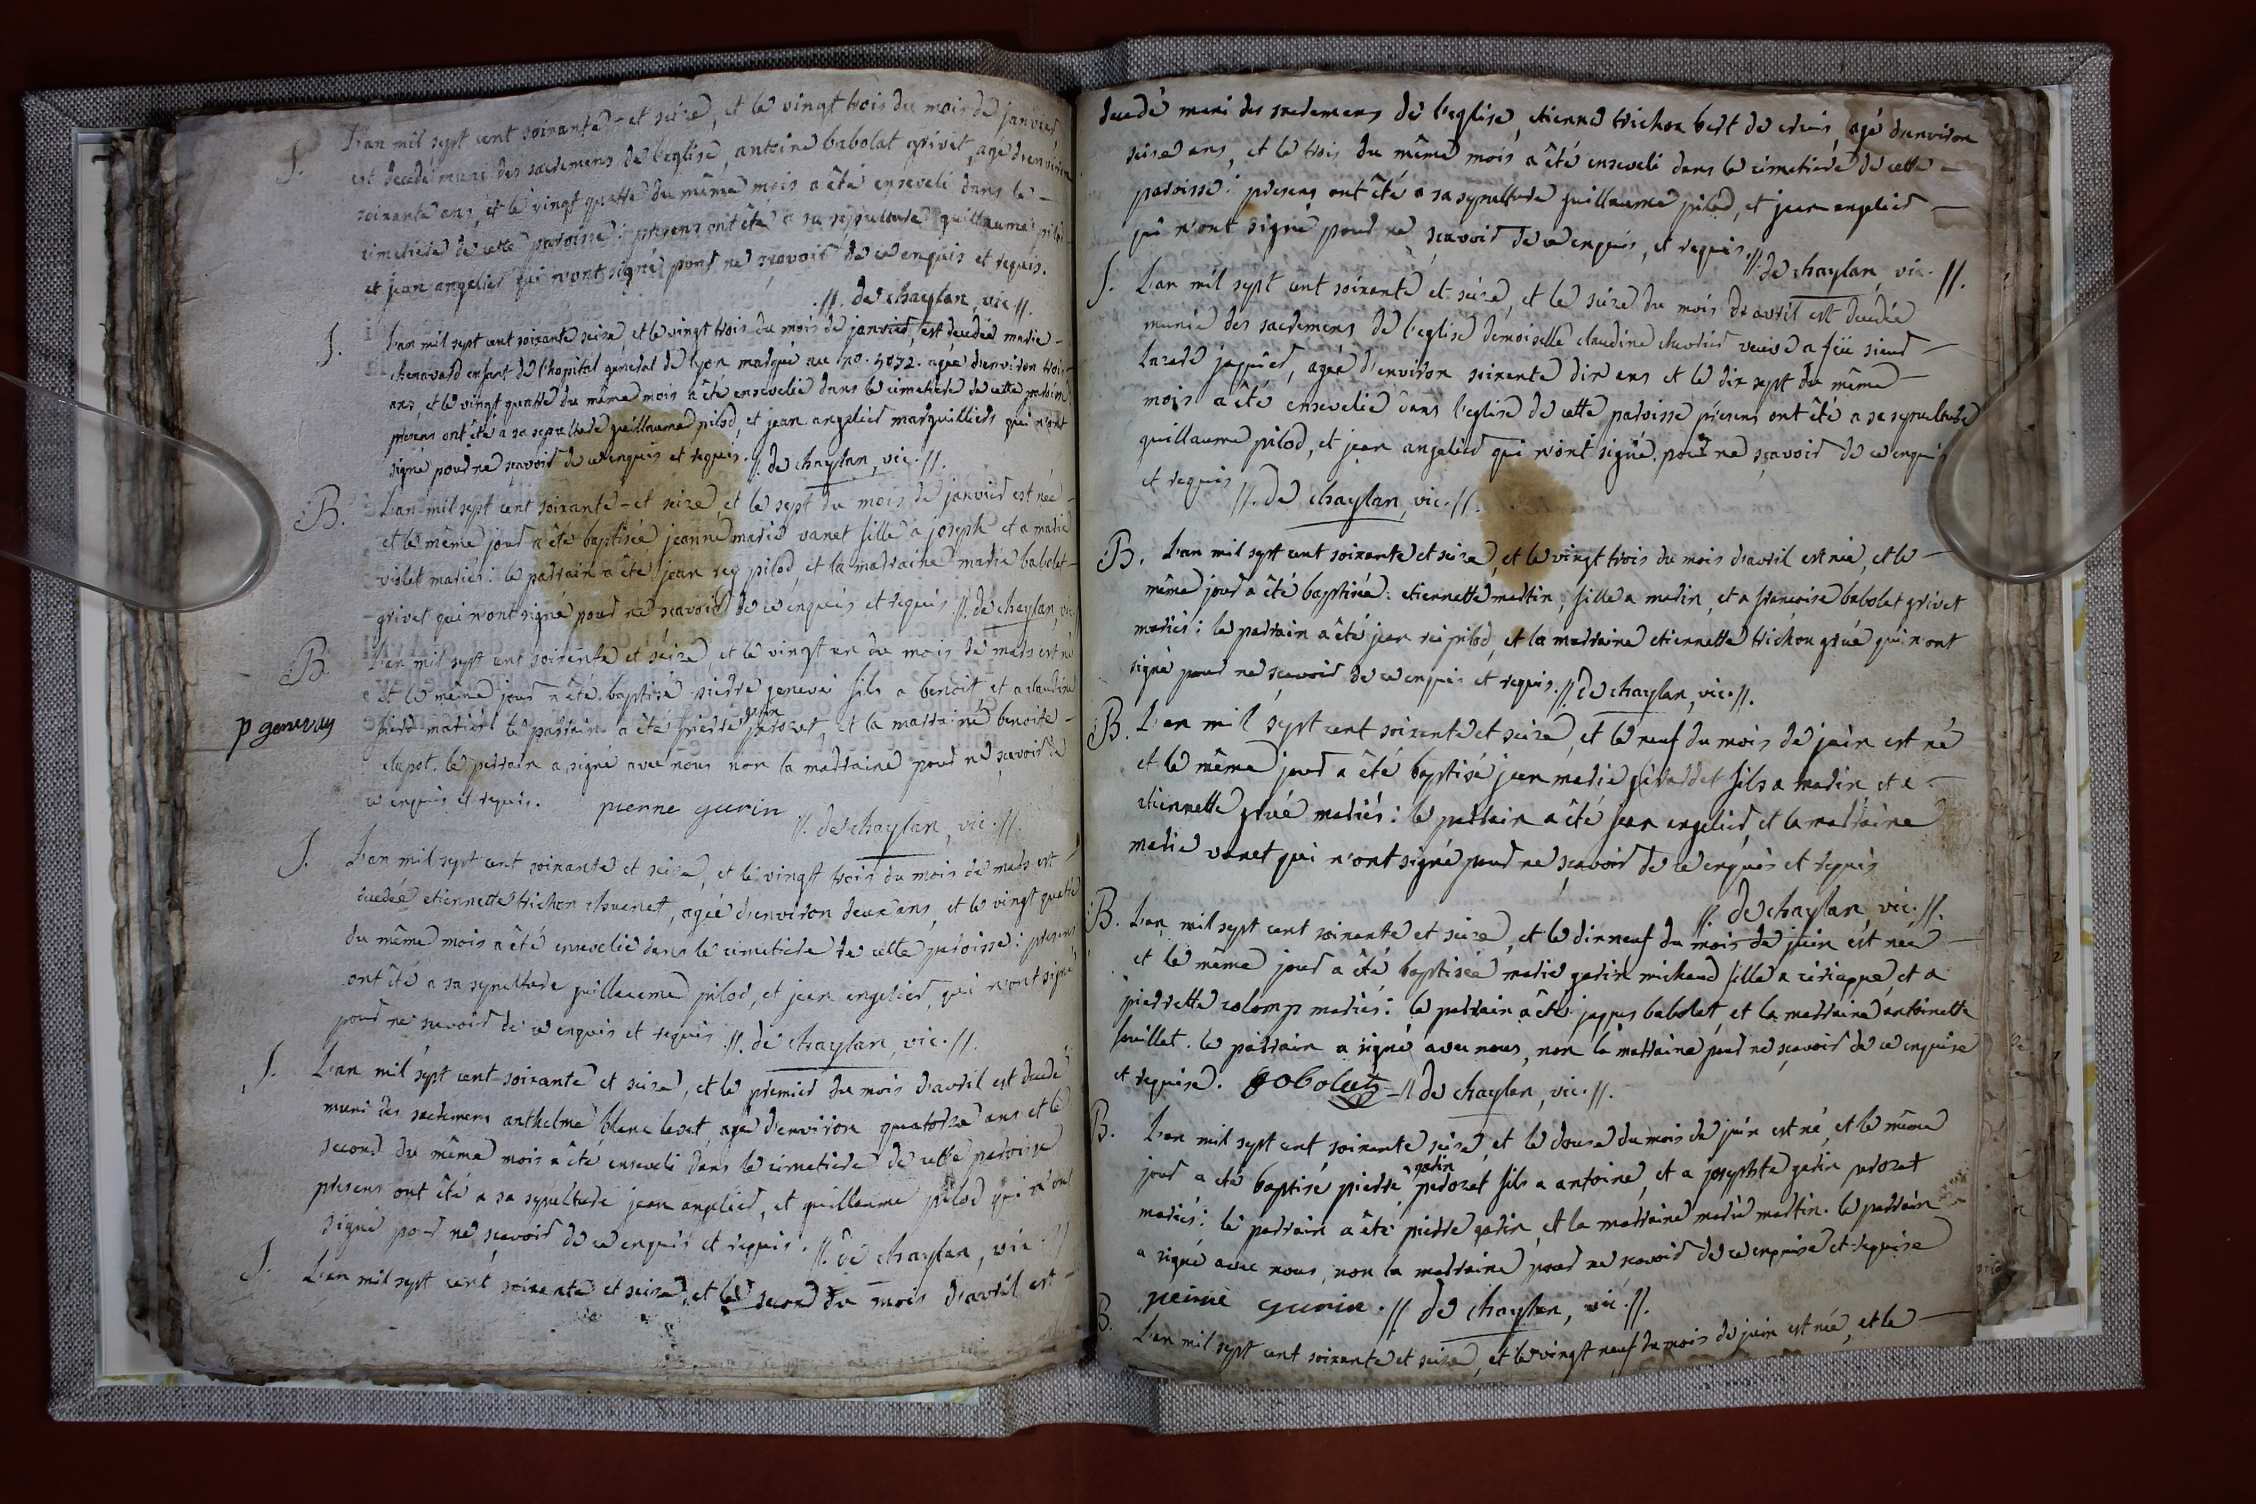 S. L'an mil sept cent soixante et seize, et le vingt trois du mois de janvier
est decedé muni des sacremens de l'eglise, antoine babolat grivet, agé d'environ
soixante ans, et le vingt quattre du même mois a été enseveli dans le
cimetiere de cette paroisse: presens ont été a sa sepulture guillaume pilod
et jean angelier qui n'ont signé pour ne scavoir de ce enquis et requis.
//. de chaylan, vic. //.
S. L'an mil sept cent soixante seize, et le vingt trois du mois de janvier, est decedée marie
chenavard enfant de l'hopital general de lyon marquée au no. 4072. agée d'environ trois
ans, et le vingt quattre du même mois a été ensevelie dans le cimetiere de cette paroisse
presens ont été a sa sepulture guillaume pilod, et jean angelier marguilliers qui n'ont
signé pour ne scavoir de ce enquis et requis. //. de chaylan, vic. //.
B. L'an mil sept cent soixante et seize, et le sept du mois de janvier est née
et le même jour a été baptisée jeanne marie vanet fille a joseph et a marie
violet mariés: le parrain a été jean rey pilod, et la marraine marie babolat
grivet qui n'ont signé pour ne scavoir de ce enquis et requis. //. de chaylan, vic.
B. L'an mil sept cent soixante et seize, et le vingt un du mois de mars est né
et le même jour a été baptisé pierre genevei fils a benoit et a claudine
p genevay
mariés le parrain a été pierre garin perozet, et la marraine benoite
clapot. le parrain a signé avec nous non la marraine pour ne scavoir de
ce enquis et requis. pierre gurin //. de chaylan, vic. //.
S. L'an mil sept cent soixante et seize, et le vingt trois du mois de mars est
decedée etiennette trichon thuenet, agée d'environ deux ans, et le vingt quatre
du même mois a été ensevelie dans le cimetiere de cette paroisse: presens
ont été a sa sepulture guillaume pilod, et jean angelier, qui n'ont signé
pour ne scavoir de ce enquis et requis. //. de chaylan, vic. //.
S. L'an mil sept cent soixante et seize, et le premier du mois d'avril est decedé
muni des sacremens anthelme blanc, agé d'environ quatorze ans et le
second du même mois a été enseveli dans le cimetiere de cette paroisse
presens ont été a sa sepulture jean angelier, et guillaume pilod qui n'ont
signé pour ne scavoir de ce enquis et requis. //. de chaylan, vic. //
S. L'an mil sept cent soixante et seize, et le second du mois d'avril est
decedé muni des sacremens de l'eglise, etienne trichon bert de, agé d'environ
seize ans, et le trois du même mois a été enseveli dans le cimetiere de cette
paroisse: presens ont été a sa sepulture guillaume pilod, et jean angelier
qui n'ont signé pour ne scavoir de ce enquis, et requis. //. de chaylan, vic. //.
S. L'an mil sept cent soixante et seize, et le seize du mois de avril est decedée
munie des sacremens de l'eglise demoiselle claudine veuve a feü sieur
Lazare, agée d'environ soixante dix ans et le dix sept du même
mois a été ensevelie dans l'eglise de cette paroisse presens ont été a sa sepulture
guillaume pilod, et jean angelier qui n'ont signé. pour ne scavoir de ce enquis
et requis //. de chaylan, vic. //.
B. L'an mil sept cent soixante et seize, et le vingt trois du mois d'avril est née, et le
même jour a été baptisée: etiennette martin, fille a marin, et a françoise babolat grivet
mariés: le parrain a été jean rei pilod, et la marraine etiennette trichon grué qui n'ont
signé pour ne scavoir de ce enquis et requis. //. de chaylan, vic. //.
B. L'an mil sept cent soixante et seize, et le neuf du mois de juin est né
et le même jour a été baptisé jean marie fils a marin et a
etiennette grué mariés: le parrain a été jean angelier, et la marraine
marie vanet qui n'ont signé pour ne scavoir de ce enquis et requis
//. de chaylan, vic. //.
B. L'an mil sept cent soixante et seize, et le dix neuf du mois de juin est née
et le même jour a été baptisée marie garin michaud fille a ciriaque, et a
pierrette colomp mariés: le parrain a été jaques babolat, et la marraine antoinette
le parrain a signé avec nous, non la marraine pour ne scavoir de ce enquise
et requise. bobolat //. de chaylan, vic. //.
B. L'an mil sept cent soixante seize, et le douze du mois de juin est né, et le même
jour a été baptisé pierre garin perozet fils a antoine, et a josephte garin perozet
mariés: le parrain a été pierre garin, et la marraine marie martin. le parrain
a signé avec nous, non la marraine pour ne scavoir de ce enquise et requise
peirre gurin. //. de chaylan, vic. //.
B. L'an mil sept cent soixante et seize, et le vingt neuf du mois de juin est née, et le